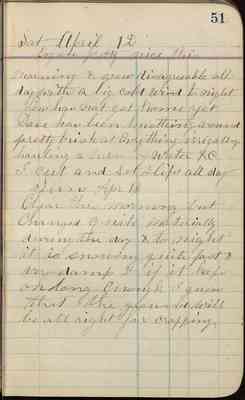 51
Sat April 12
in a nice this
morning & grew disagreeable all
day with a big cold wind to night
has not got home yet
Dave has been knothing around
pretty brisk at Anything irrigating
hauling a turn of Water &C
I cut and Set Slips all day
Apr 13
Clear this morning but
Changed materially
during the day & to night
it is snowing quite fast &
damp & if it keeps
on long Enough I guess
that the ground will
be all right for cropping.